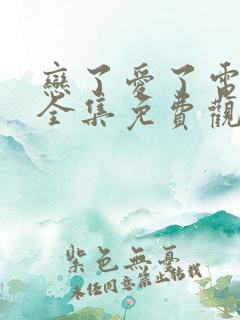 戀了愛了電
全集免費觀
紫色無憂
未经同意禁止转载